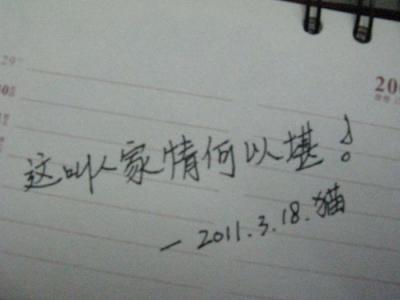 29
30
20
这叫人家情何以堪！
— 2011.3.18.猫